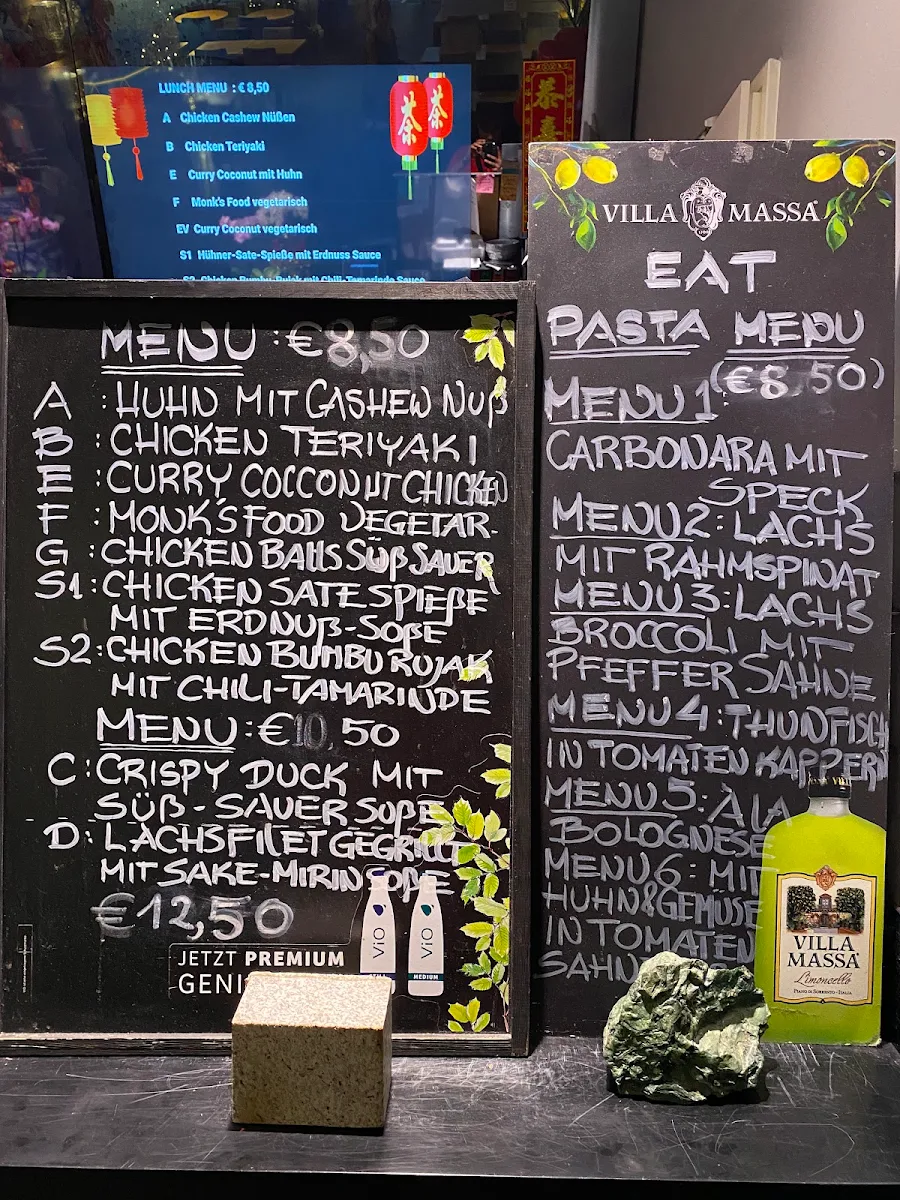 LUNCH MENU : € 8,50
A Chicken Cashew Nüßen
B Chicken Teriyaki
E Curry Coconut mit Huhn
F Monk's Food vegetarisch
EV Curry Coconut vegetarisch
S1 Hühner-Sate-Spieße mit Erdnuss Sauce
S2 Chicken Bumbu-Rujak mit Chili-Tamarinde Sauce
茶
茶
恭
喜
MENU : €8,50
A : HUHN MIT CASHEW NUß
B : CHICKEN TERIYAKI
E : CURRY COCCONUT CHICKEN
F : MONK'S FOOD VEGETAR.
G : CHICKEN BALLS SÜß SAUER
S1 : CHICKEN SATE SPIEßE
MIT ERDNUß-SOßE
S2 : CHICKEN BUMBU RUJAK
MIT CHILI-TAMARINDE
MENU : €10,50
C : CRISPY DUCK MIT
SÜß-SAUER SOßE
D : LACHSFILET GEGRILLT
MIT SAKE-MIRIN SOßE
€12,50
JETZT PREMIUM
GENI
ViO
ViO
STILL
MEDIUM
VILLA MASSA
EAT
PASTA MENU
(€8,50)
MENU 1
CARBONARA MIT
SPECK
MENU 2: LACHS
MIT RAHMSPINAT
MENU 3: LACHS
BROCCOLI MIT
PFEFFER SAHNE
MENU 4: THUNFISCH
IN TOMATEN KAPPERN
MENU 5: À LA
BOLOGNESE
MENU 6: MIT
HUHN&GEMÜSE
IN TOMATEN
SAHN
VILLA
MASSA
Limoncello
PIANO DI SORRENTO - ITALIA